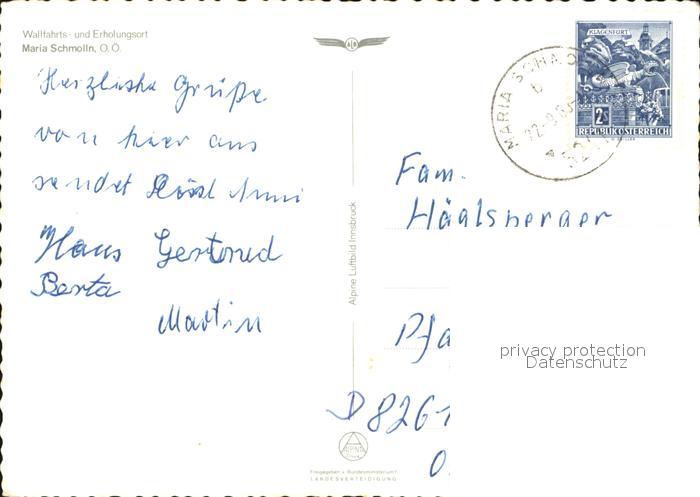 Wallfahrts- und Erholungsort
Maria Schmolln, O. Ö.
Herzliche Grüße
von hier aus
sendet Rössl Anni
Hans Gertrud
Berta
Martin
Alpine Luftbild Innsbruck
KLAGENFURT
2S
REPUBLIK ÖSTERREICH
MARIA SCHMO
Fam.
Pfa
D 826
privacy protection
Datenschutz
Freigegeben v. Bundesministerium f.
LANDESVERTEIDIGUNG